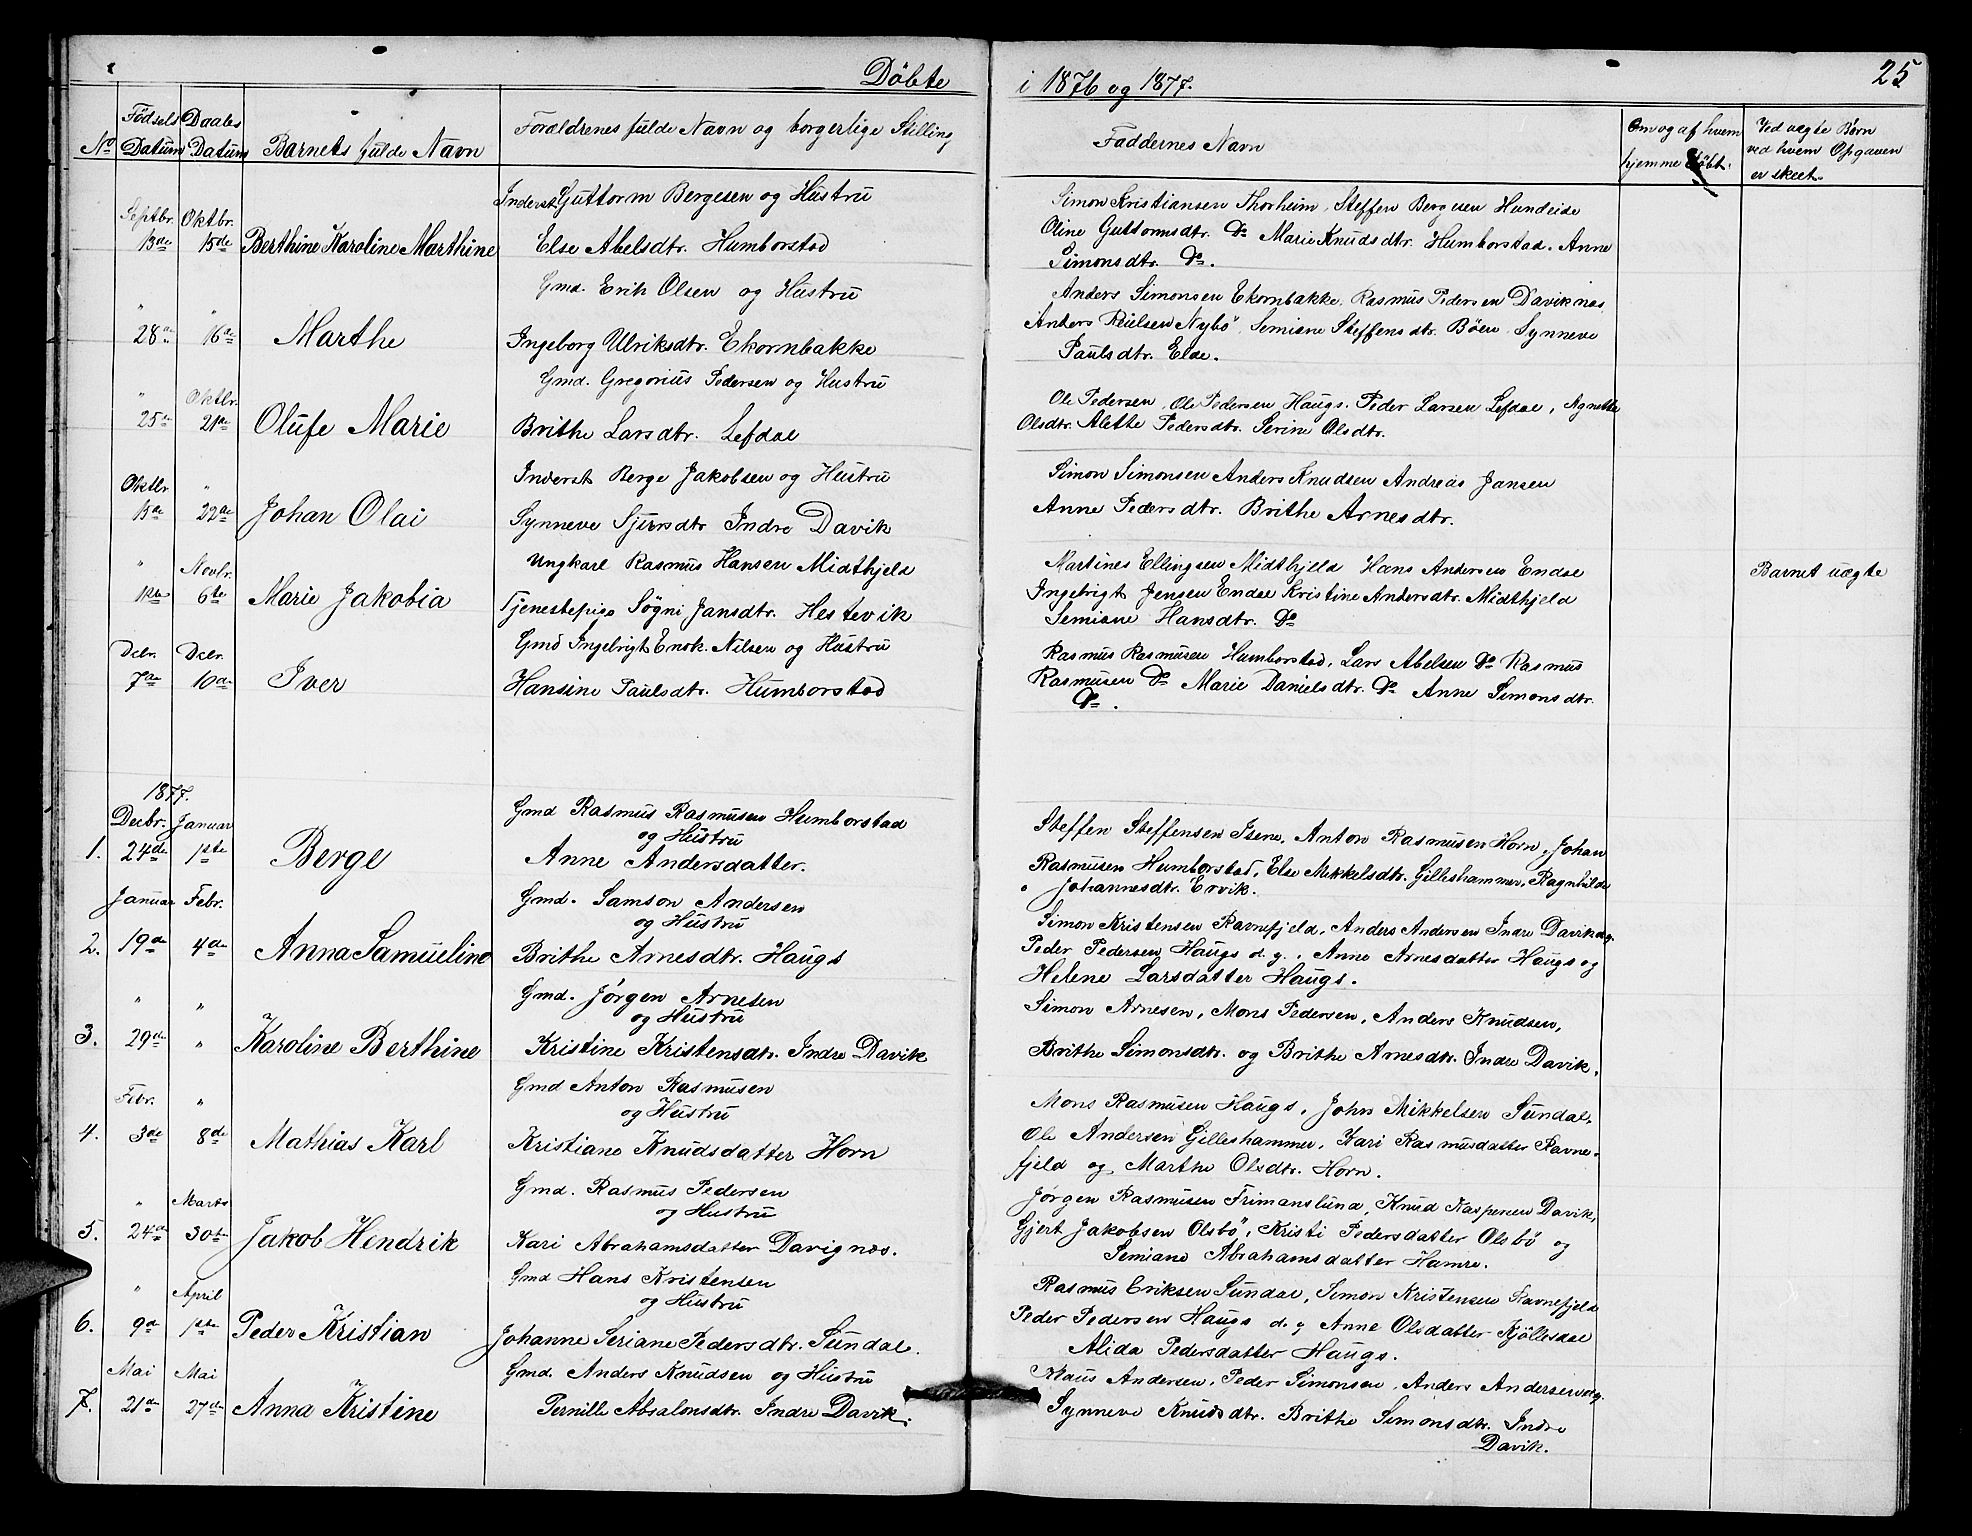 Döbte
i 1876 og 1877.
25
No
Födsels Datum
Daabs Datum
Barnets fulde Navn
Forældrenes fulde Navn og borgerlige Stilling
Faddernes Navn
Om og af hvem hjemme döbt.
Ved uægte Børn
ved hvem Opgaven
er skeet.
Septbr. Oktbr. Inderst Guttorm Bergesen og Hustru
13de 15de Berthine Karoline Marthine Else Abelsdtr. Humborstad
Simon Kristiansen Thorheim, Steffen Bergesen Hundeide
Oline Guttormsdtr. Do Marie Knudsdtr. Humborstad. Anne
Simonsdtr. Do.
" " Gmd. Erik Olsen og Hustru
28de 16de Marthe Ingeborg Ulriksdtr. Ekornbakke
Anders Simonsen Ekornbakke, Rasmus Pedersen Daviknæs
Anders Nybö, Semiane Steffensdtr. Böen, Synneve
Paulsdtr. Elde.
" Oktbr. Gmd. Gregorius Pedersen og Hustru
25de 21de Olufe Marie Brithe Larsdtr. Lefdal
Ole Pedersen, Ole Pedersen Haugs. Peder Larsen Lefdal, Agnethe
Olsdtr. Alette Pedersdtr. Serine Olsdtr.
Oktbr " Inderst Berge Jakobsen og Hustru
15de 22de Johan Olai Synneve Sjursdtr Indre Davik
Simon Simonsen Anders Knudsen Andreas Jansen
Anne Pedersdtr. Brithe Arnesdtr.
" Novbr. Ungkarl Rasmus Hansen Midthjeld
1ste 6te Marie Jakobia Tjenestepige Sögni Jansdtr. Hestevik
Martines Ellingsen Midthjeld Hans Andersen Endal
Ingebrigt Jensen Endal Kristine Andersdtr. Midthjeld
Semiane Hansdtr. Do
Barnet uægte
Debr. Debr. Gmd Ingebrigt Enok. Nilsen og Hustru
7de 10de Iver Hansine Paulsdtr. Humborstad
Rasmus Rasmusen Humborstad, Lars Abelsen Do Rasmus
Rasmusen Do Marie Danielsdtr. Do Anne Simonsdtr.
Do.
1877.
Decbr. Januar Gmd Rasmus Rasmusen Humborstad
og Hustru
1. 24de 1ste Berge Anne Andersdatter.
Steffen Steffensen Isene, Anton Rasmusen Horn, Johan
Rasmusen Humborstad, Else Mikkelsdtr. Gilleshammer, Ragnhilde
Johannesdtr. Ervik.
Januar Febr. Gmd. Samson Andersen
og Hustru
2. 19de 4de Anna Samueline Brithe Arnesdtr. Haugs
Simon Kristensen Ravnefjeld, Anders Andersen Indre Davik
Peder Pedersen Haugs d. y., Anne Arnesdatter Haugs og
Helene Larsdatter Haugs.
" " Gmd. Jörgen Arnesen
og Hustru
3. 29de " Karoline Berthine Kristine Kristensdtr. Indre Davik
Simon Arnesen, Mons Pedersen, Anders Knudsen,
Brithe Simonsdtr. og Brithe Arnesdtr. Indre Davik.
Febr. " Gmd Anton Rasmusen
og Hustru
4. 3de 8de Mathias Karl Kristiane Knudsdatter Horn
Mons Rasmusen Haugs, John Mikkelsen Sundal,
Ole Andersen Gilleshammer, Kari Rasmusdatter Ravne-
fjeld og Marthe Olsdtr. Horn.
" Marts Gmd. Rasmus Pedersen
og Hustru
5. 24de 30te Jakob Hendrik Kari Abrahamsdatter Davignæs.
Jörgen Rasmusen Frimanslund, Knud Kaspersen Davik,
Gjert Jakobsen Olsbö, Kristi Pedersdatter Olsbö og
Semiane Abrahamsdatter Hamre.
" April Gmd Hans Kristensen
og Hustru
6. 9de 1ste Peder Kristian Johanne Seriane Pedersdtr. Sundal.
Rasmus Eriksen Sundal, Simon Kristensen Ravnefjeld
Peder Pedersen Haugs d. y Anne Olsdatter Kjöllesdal
Alida Pedersdatter Haugs.
Mai Mai Gmd. Anders Knudsen og Hustru
7. 21de 27de Anna Kristine Pernille Absalonsdtr. Indre Davik.
Klaus Andersen, Peder Simonsen, Anders Andersen og
Synneve Knudsdtr. Brithe Simonsdtr. Indre
Davik.